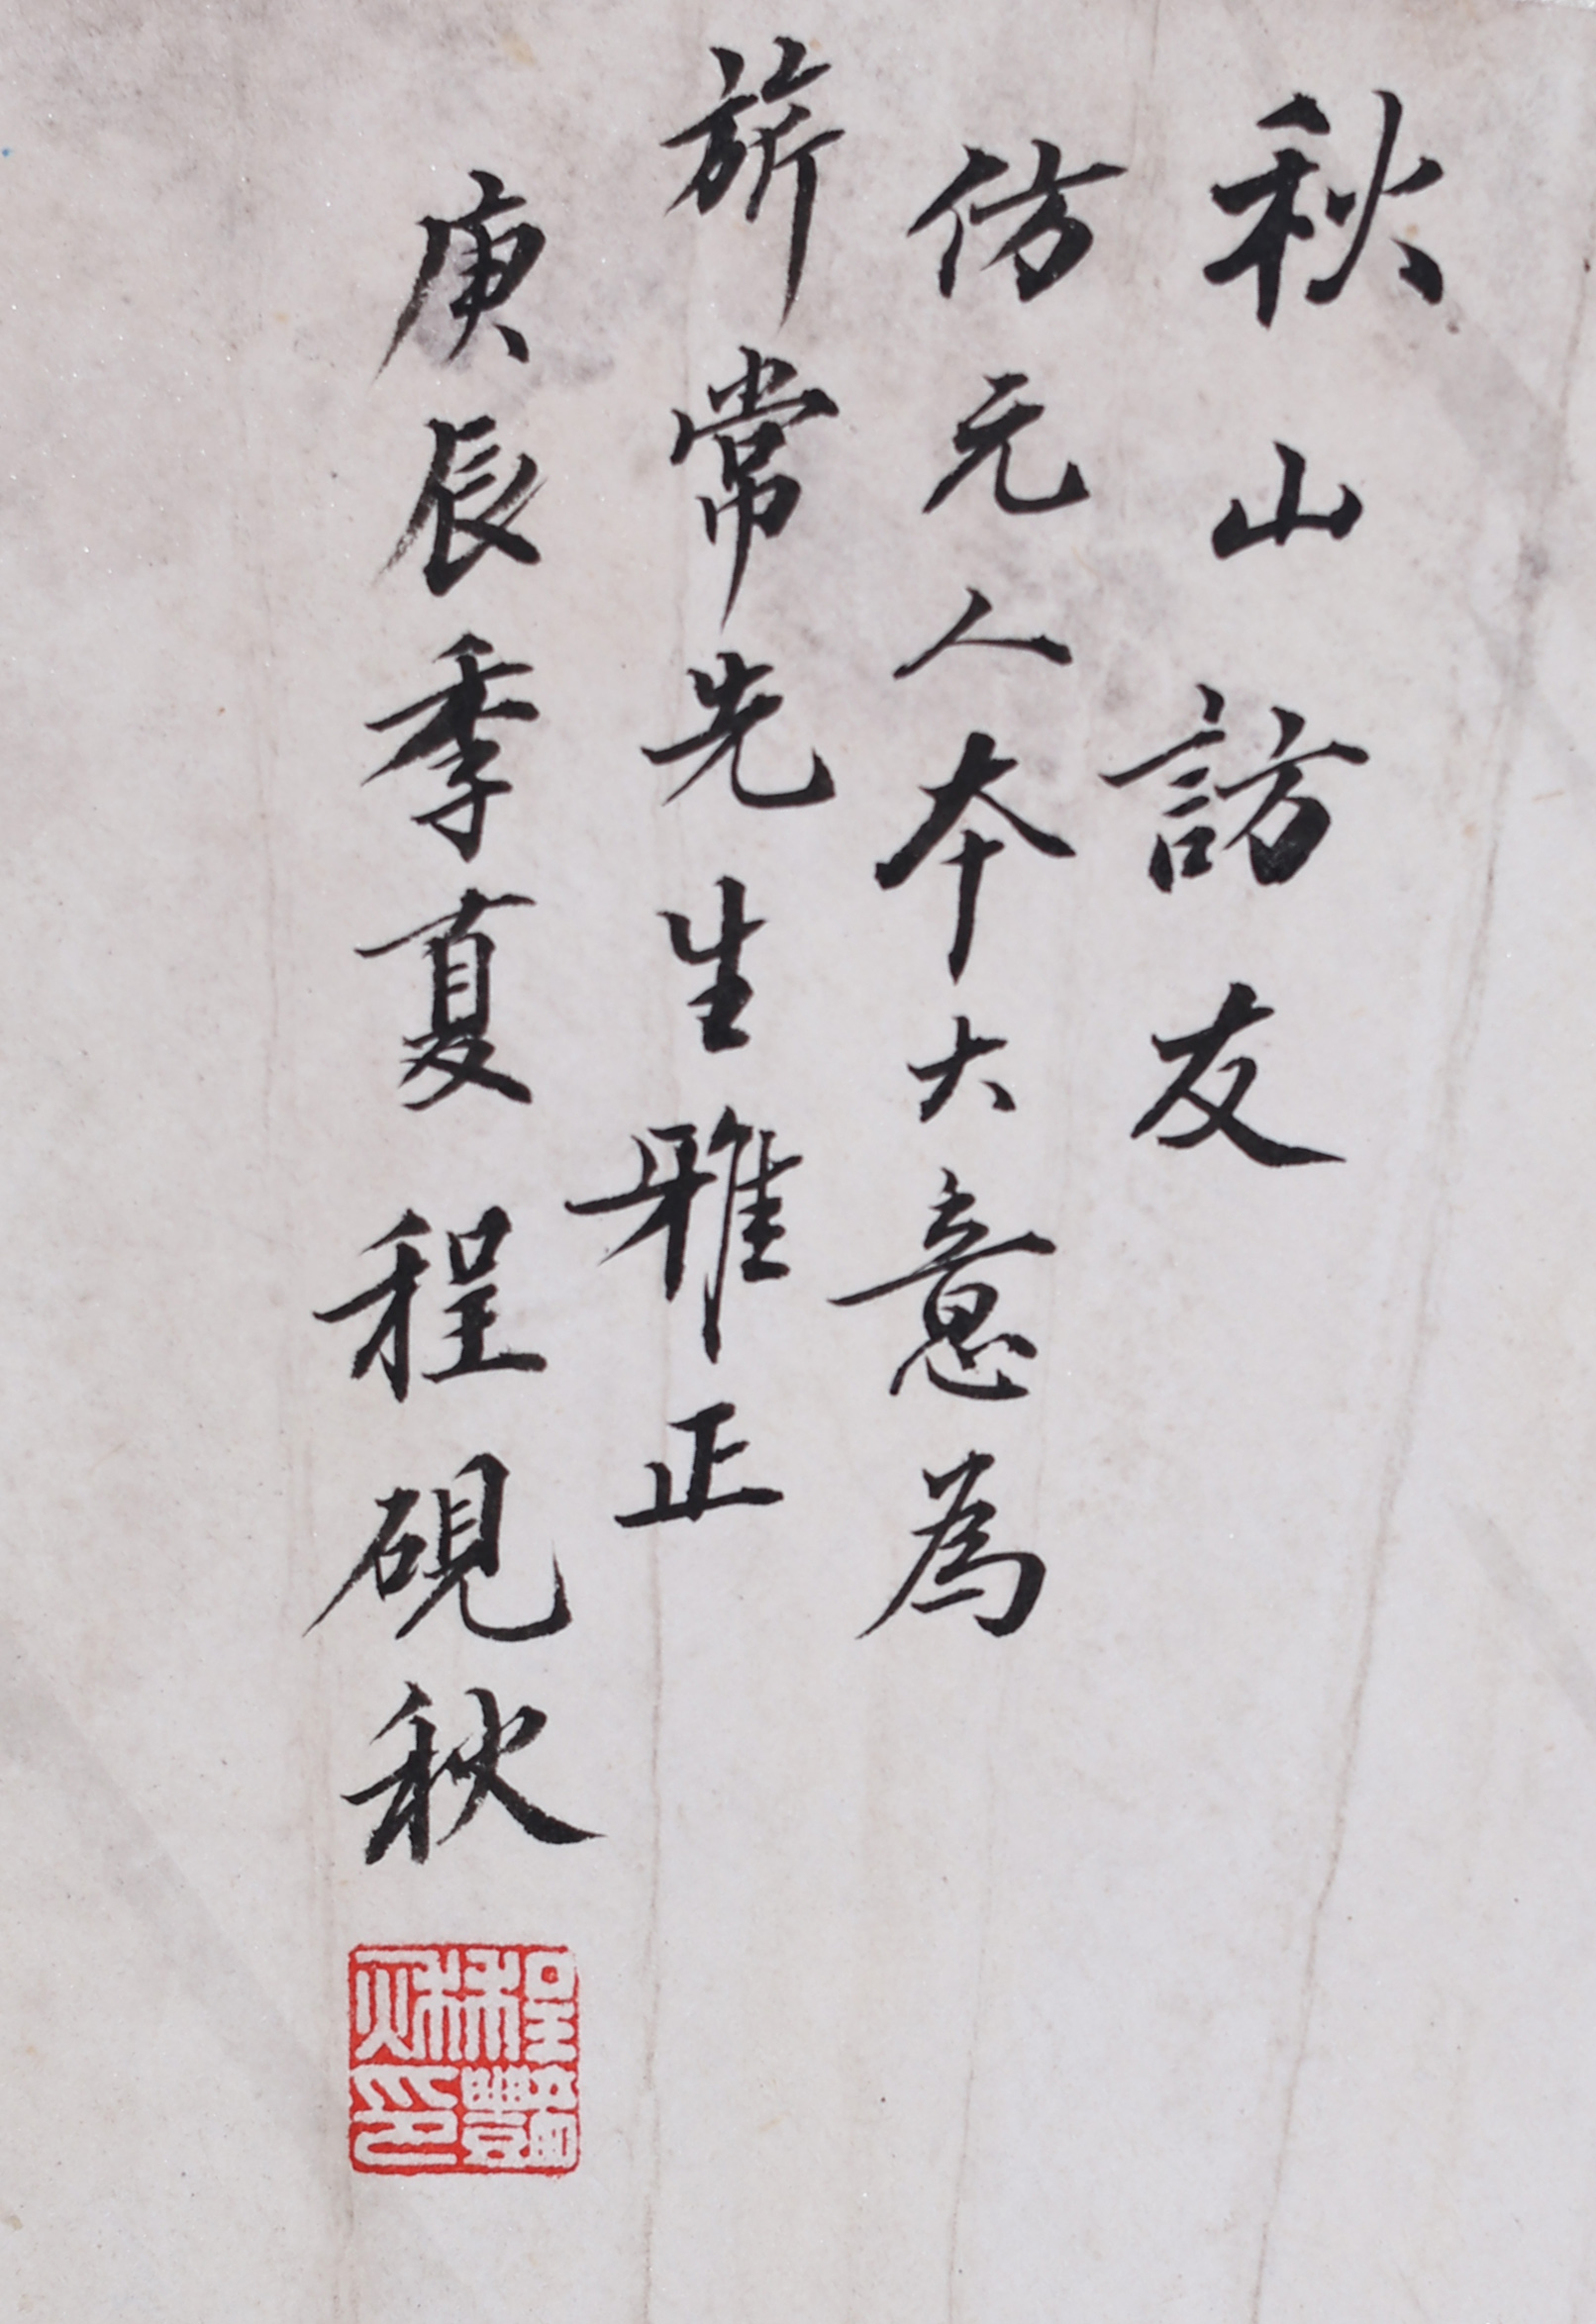 秋山訪友
仿元人本大意為
旂常先生雅正
庚辰季夏 程硯秋
程豔秋印